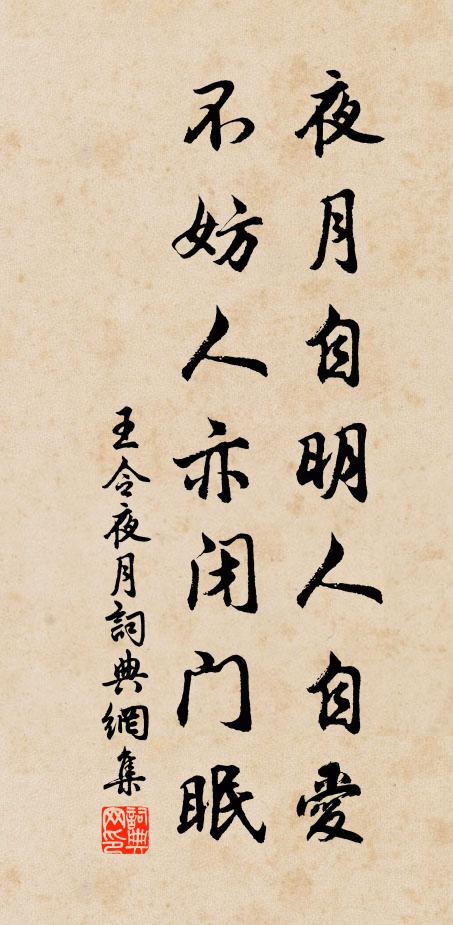 夜月自明人自愛
不妨人亦闭门眠
王令夜月詞典網集
詞典网印